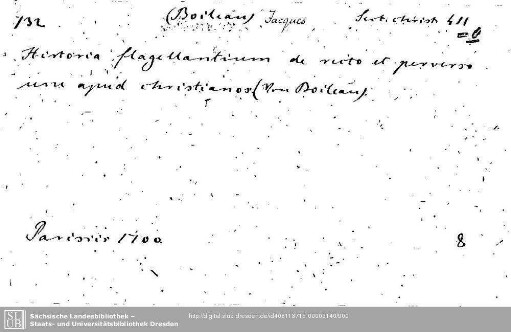 732 (Boileau) Jacques Sect. christ. 411
Historia flagellantium de recto et perverso
usu apud christianos (Von Boileau).
Parisiis 1700. 8
Sächsische Landesbibliothek –
Staats- und Universitätsbibliothek Dresden